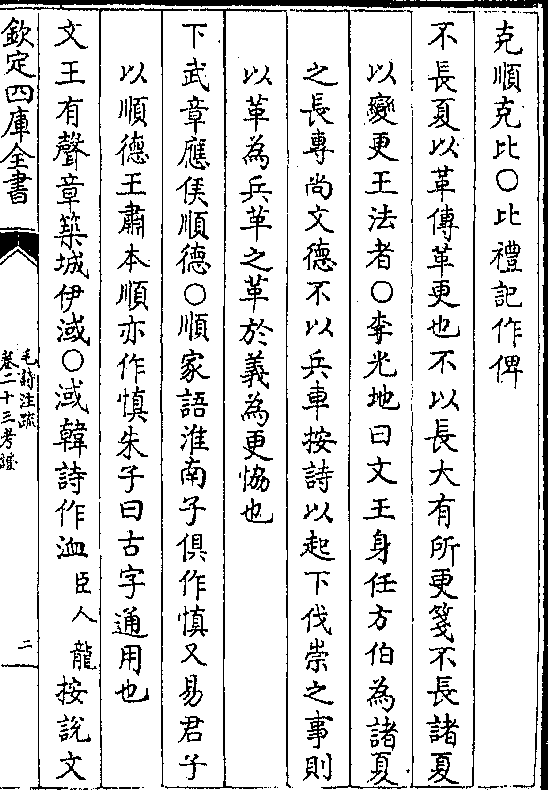 克順克比○比禮記作俾
不長夏以革傳革更也不以長大有所更箋不長諸夏
以變更王法者○李光地曰文王身任方伯為諸夏
之長專尚文德不以兵車按詩以起下伐崇之事則
以革為兵革之革於義為更恊也
下武章應侯順德○順家語淮南子俱作慎又易君子
以順德王肅本順亦作慎朱子曰古字通用也
文王有聲章築城伊淢○淢韓詩作洫臣人龍按說文
欽定四庫全書
毛詩注疏
卷二十三考證
二